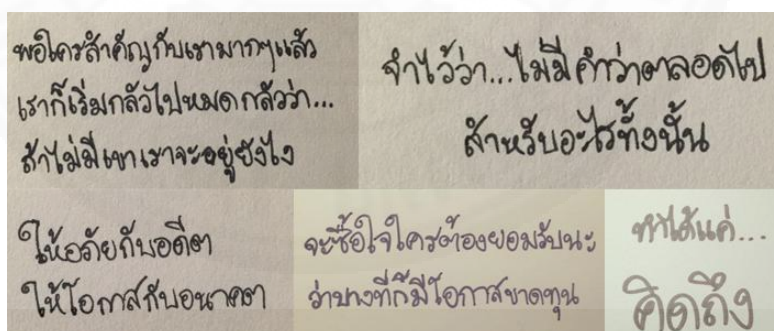 พอใครสำคัญกับเรามากๆแล้ว
เราก็เริ่มกลัวไปหมดกลัวว่า...
ถ้าไม่มีเขาเราจะอยู่ยังไง
จำไว้ว่า...ไม่มีคำว่าตลอดไป
สำหรับอะไรทั้งนั้น
ให้อภัยกับอดีต
ให้โอกาสกับอนาคต
จะซื้อใจใครต้องยอมรับนะ
ว่าบางทีก็มีโอกาสขาดทุน
ทำได้แค่...
คิดถึง